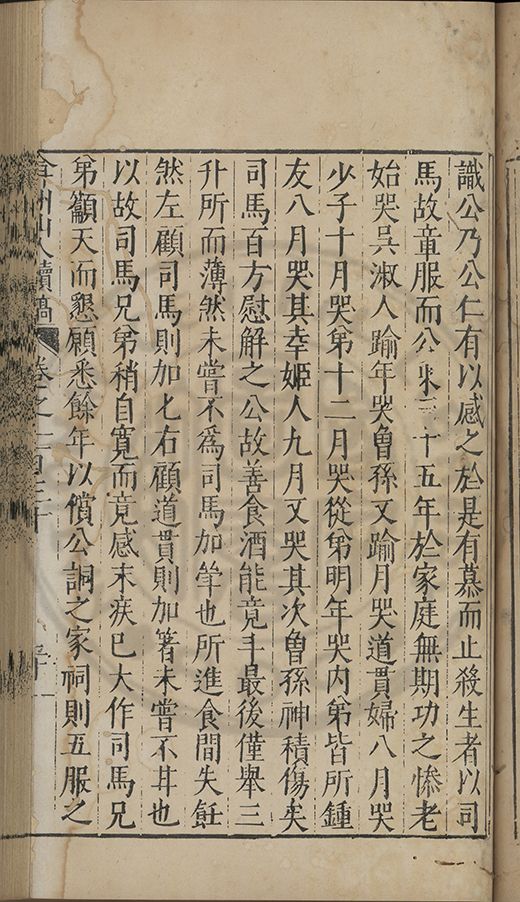 識公乃公仁有以感之於是有慕而止殺生者以司
馬故童服而公來三十五年於家庭無期功之慘老
始哭吳淑人踰年哭曾孫又踰月哭道貫婦八月哭
少子十月哭弟十二月哭從弟明年哭內弟皆所鍾
友八月哭其幸姬人九月又哭其次曾孫神積傷矣
司馬百方慰解之公故善食酒能竟斗最後僅舉三
升所而薄然未嘗不爲司馬加也所進食間失飪
然左顧司馬則加匕右顧道貫則加箸未嘗不甘也
以故司馬兄弟稍自寬而竟感末疾已大作司馬兄
弟籲天而懇願悉餘年以償公詗之家祠則五服之
弇州山人續稿 卷之一百三十